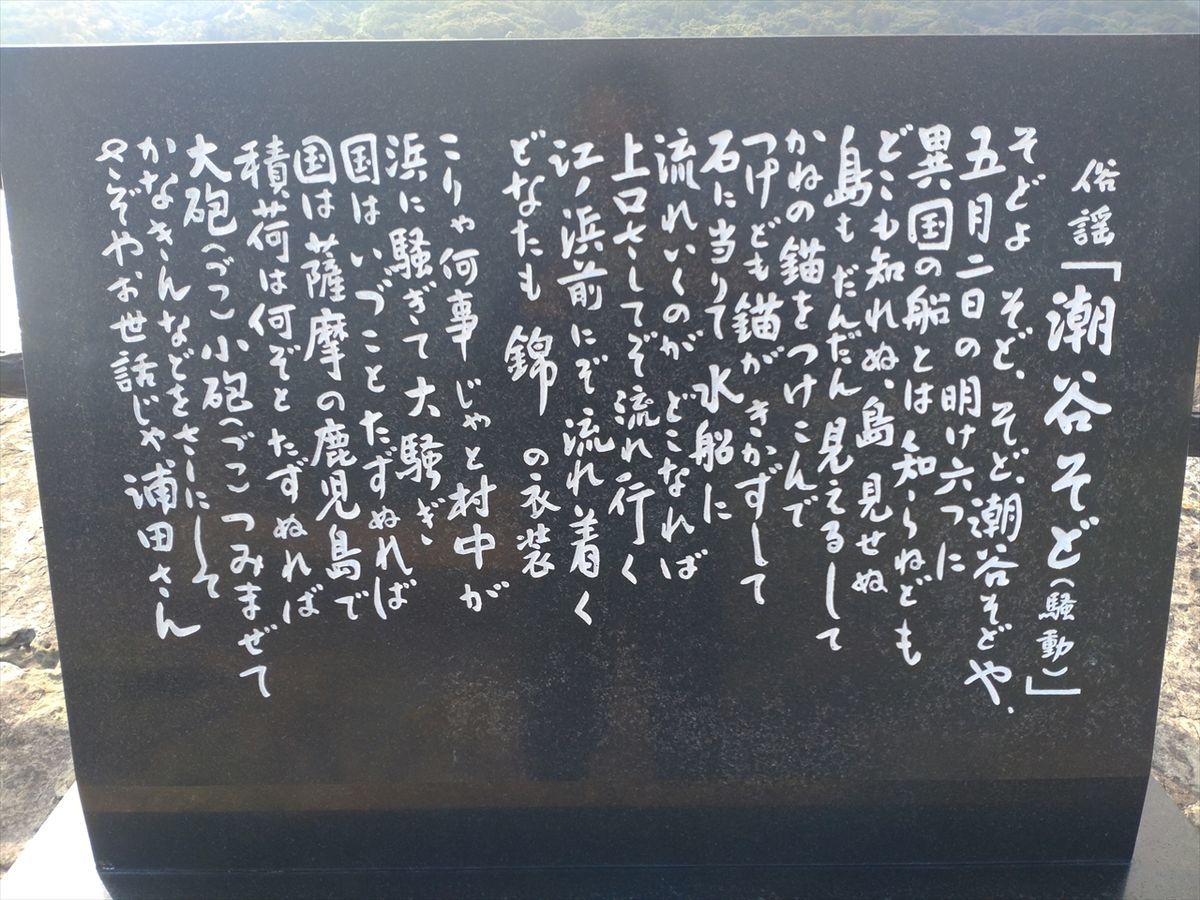 俗謡「潮谷そど（騒動）」
そどよ そど、そど、潮谷そどや、
五月二日の明け六つに
異国の船とは知らねども
どこも知れぬ、島見せぬ
島もだんだん見えるして
かねの錨をつけこんで
つけども錨がきかずして
石に当りて水船に
流れいくのがどこなれば
上口さしてぞ流れ行く
江ノ浜前にぞ流れ着く
どなたも 錦の衣装
こりゃ何事じゃと村中が
浜に騒ぎて大騒ぎ
国はいづことたずぬれば
国は薩摩の鹿児島で
積荷は何ぞとたずぬれば
大砲（づつ）小砲（づつ）つみまぜて
かなきんなどをさーにして
さぞやお世話じゃ浦田さん